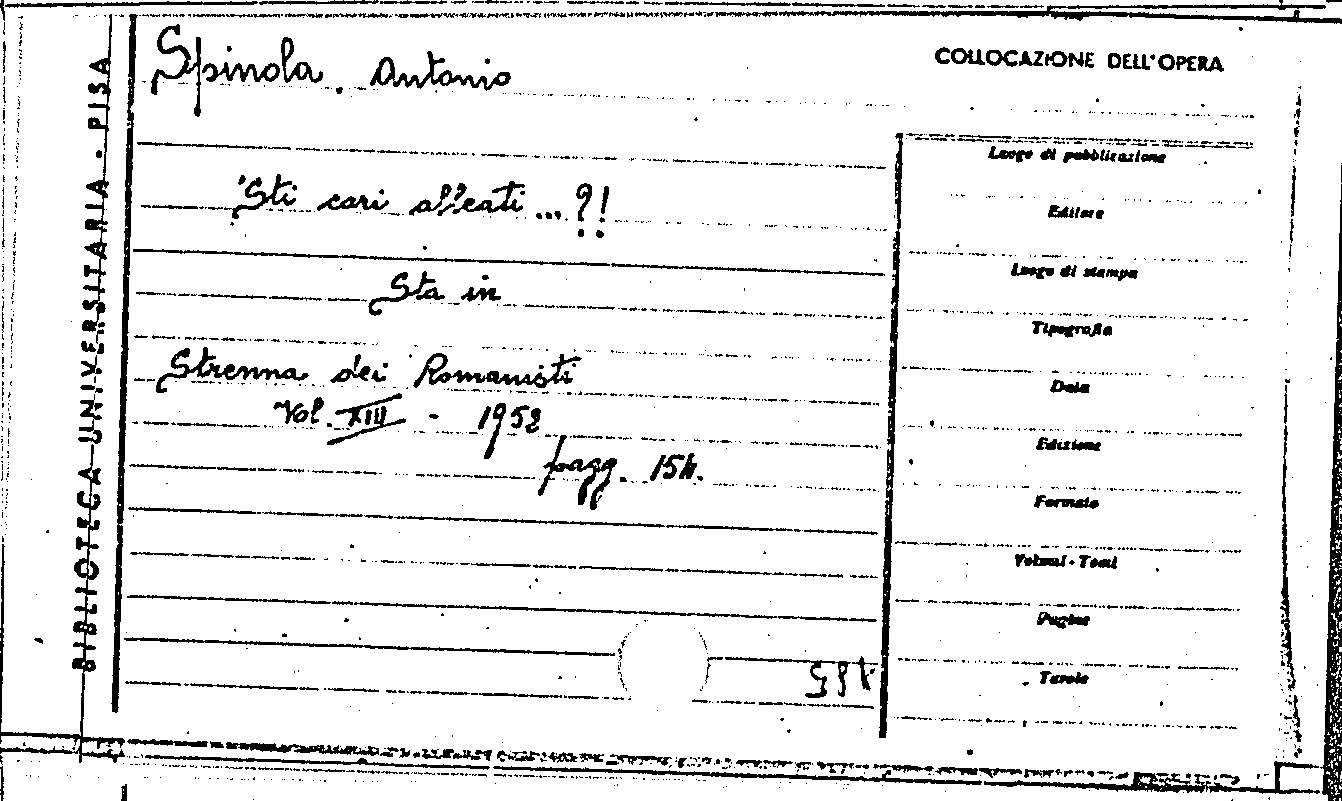 BIBLIOTECA UNIVERSITARIA - PISA
Spinola, Antonio
COLLOCAZIONE DELL'OPERA
'Sti cari alleati...?!
Sta in
Strenna dei Romanisti
Vol. XIII - 1952
pagg. 154.
Luogo di pubblicazione
Editore
Luogo di stampa
Tipografia
Data
Edizione
Formato
Volumi - Tomi
Pagine
Tavole